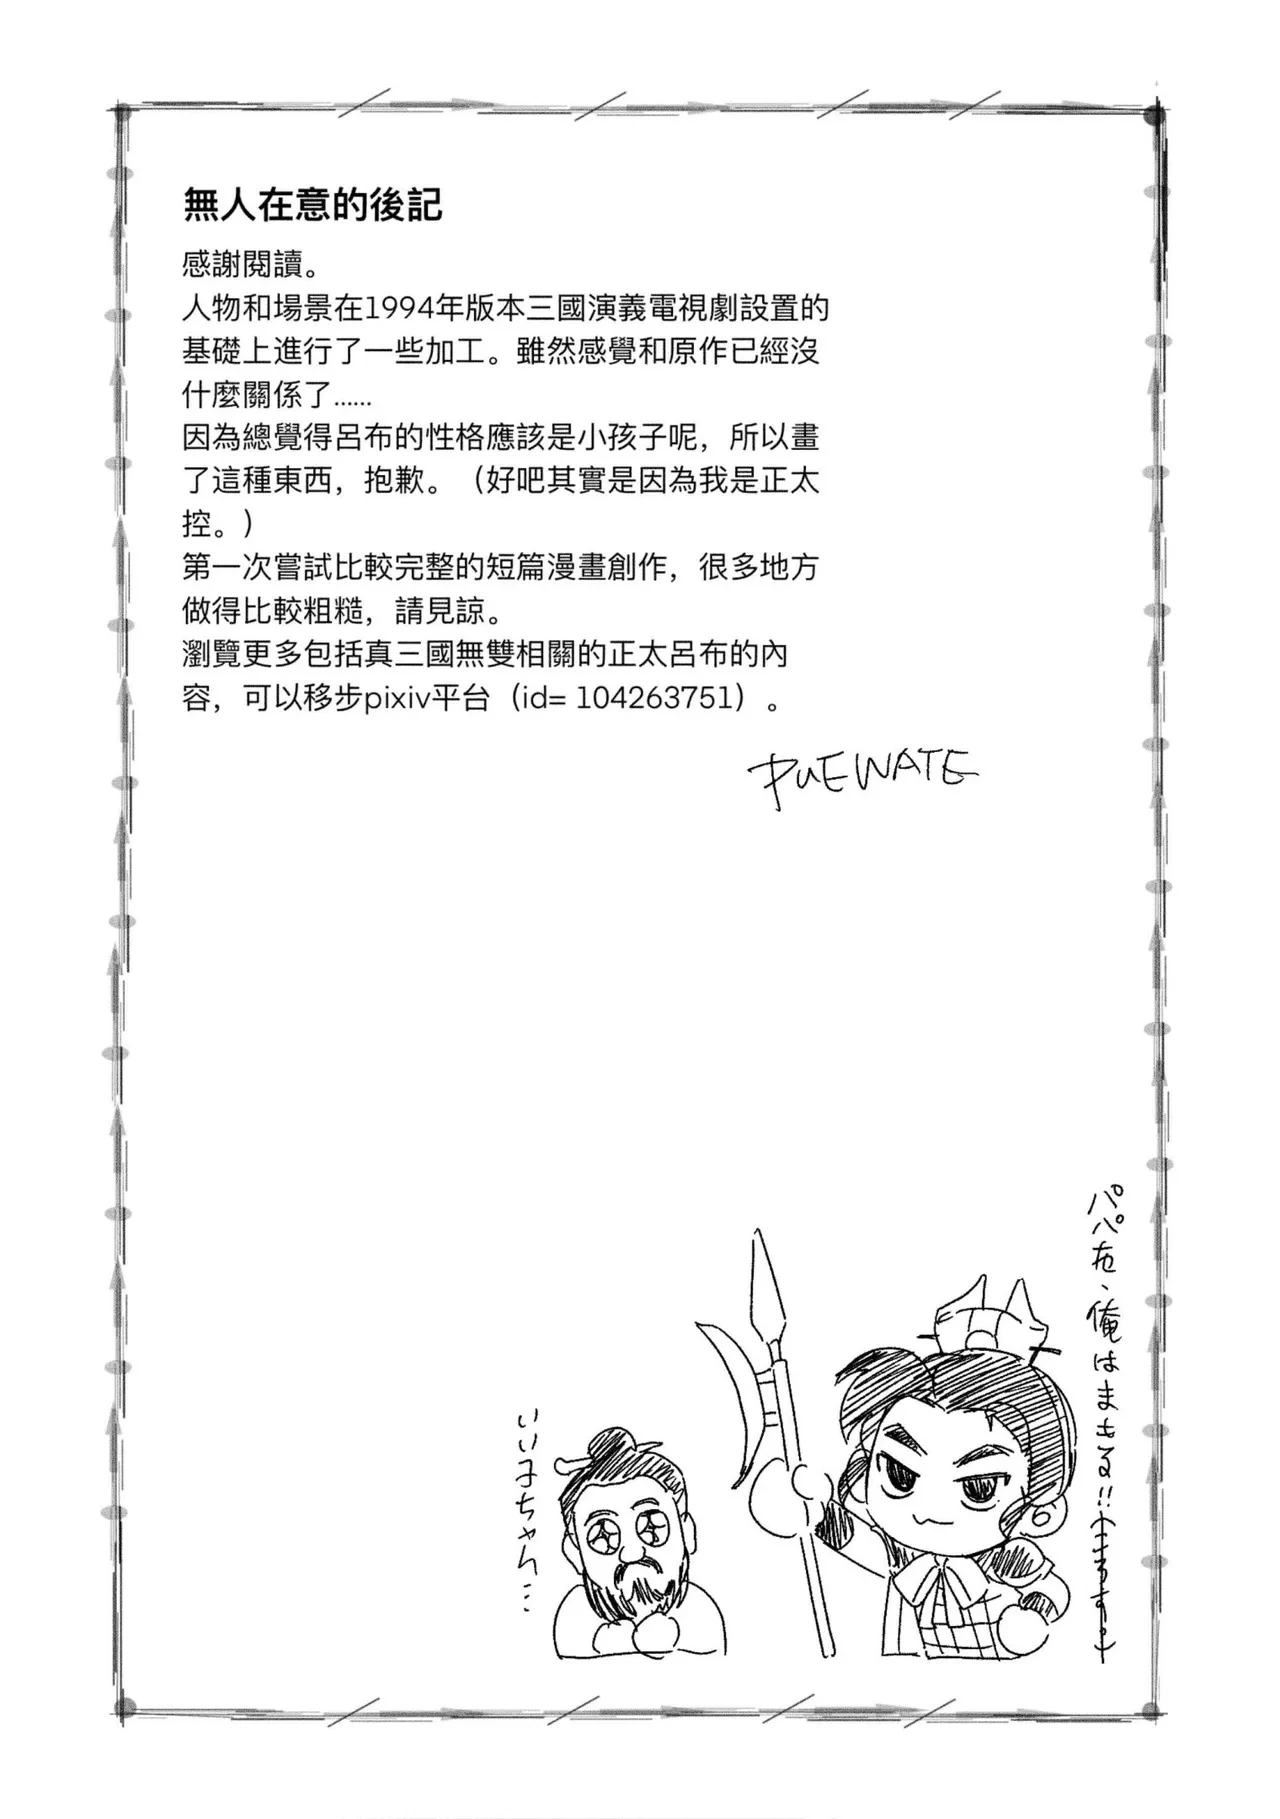 無人在意的後記
感謝閱讀。
人物和場景在1994年版本三國演義電視劇設置的
基礎上進行了一些加工。雖然感覺和原作已經沒
什麼關係了......
因為總覺得呂布的性格應該是小孩子呢，所以畫
了這種東西，抱歉。（好吧其實是因為我是正太
控。）
第一次嘗試比較完整的短篇漫畫創作，很多地方
做得比較粗糙，請見諒。
瀏覽更多包括真三國無雙相關的正太呂布的內
容，可以移步pixiv平台（id= 104263751）。
PUEWATE
パパを、俺はまもる!!
いい子ちゃん...